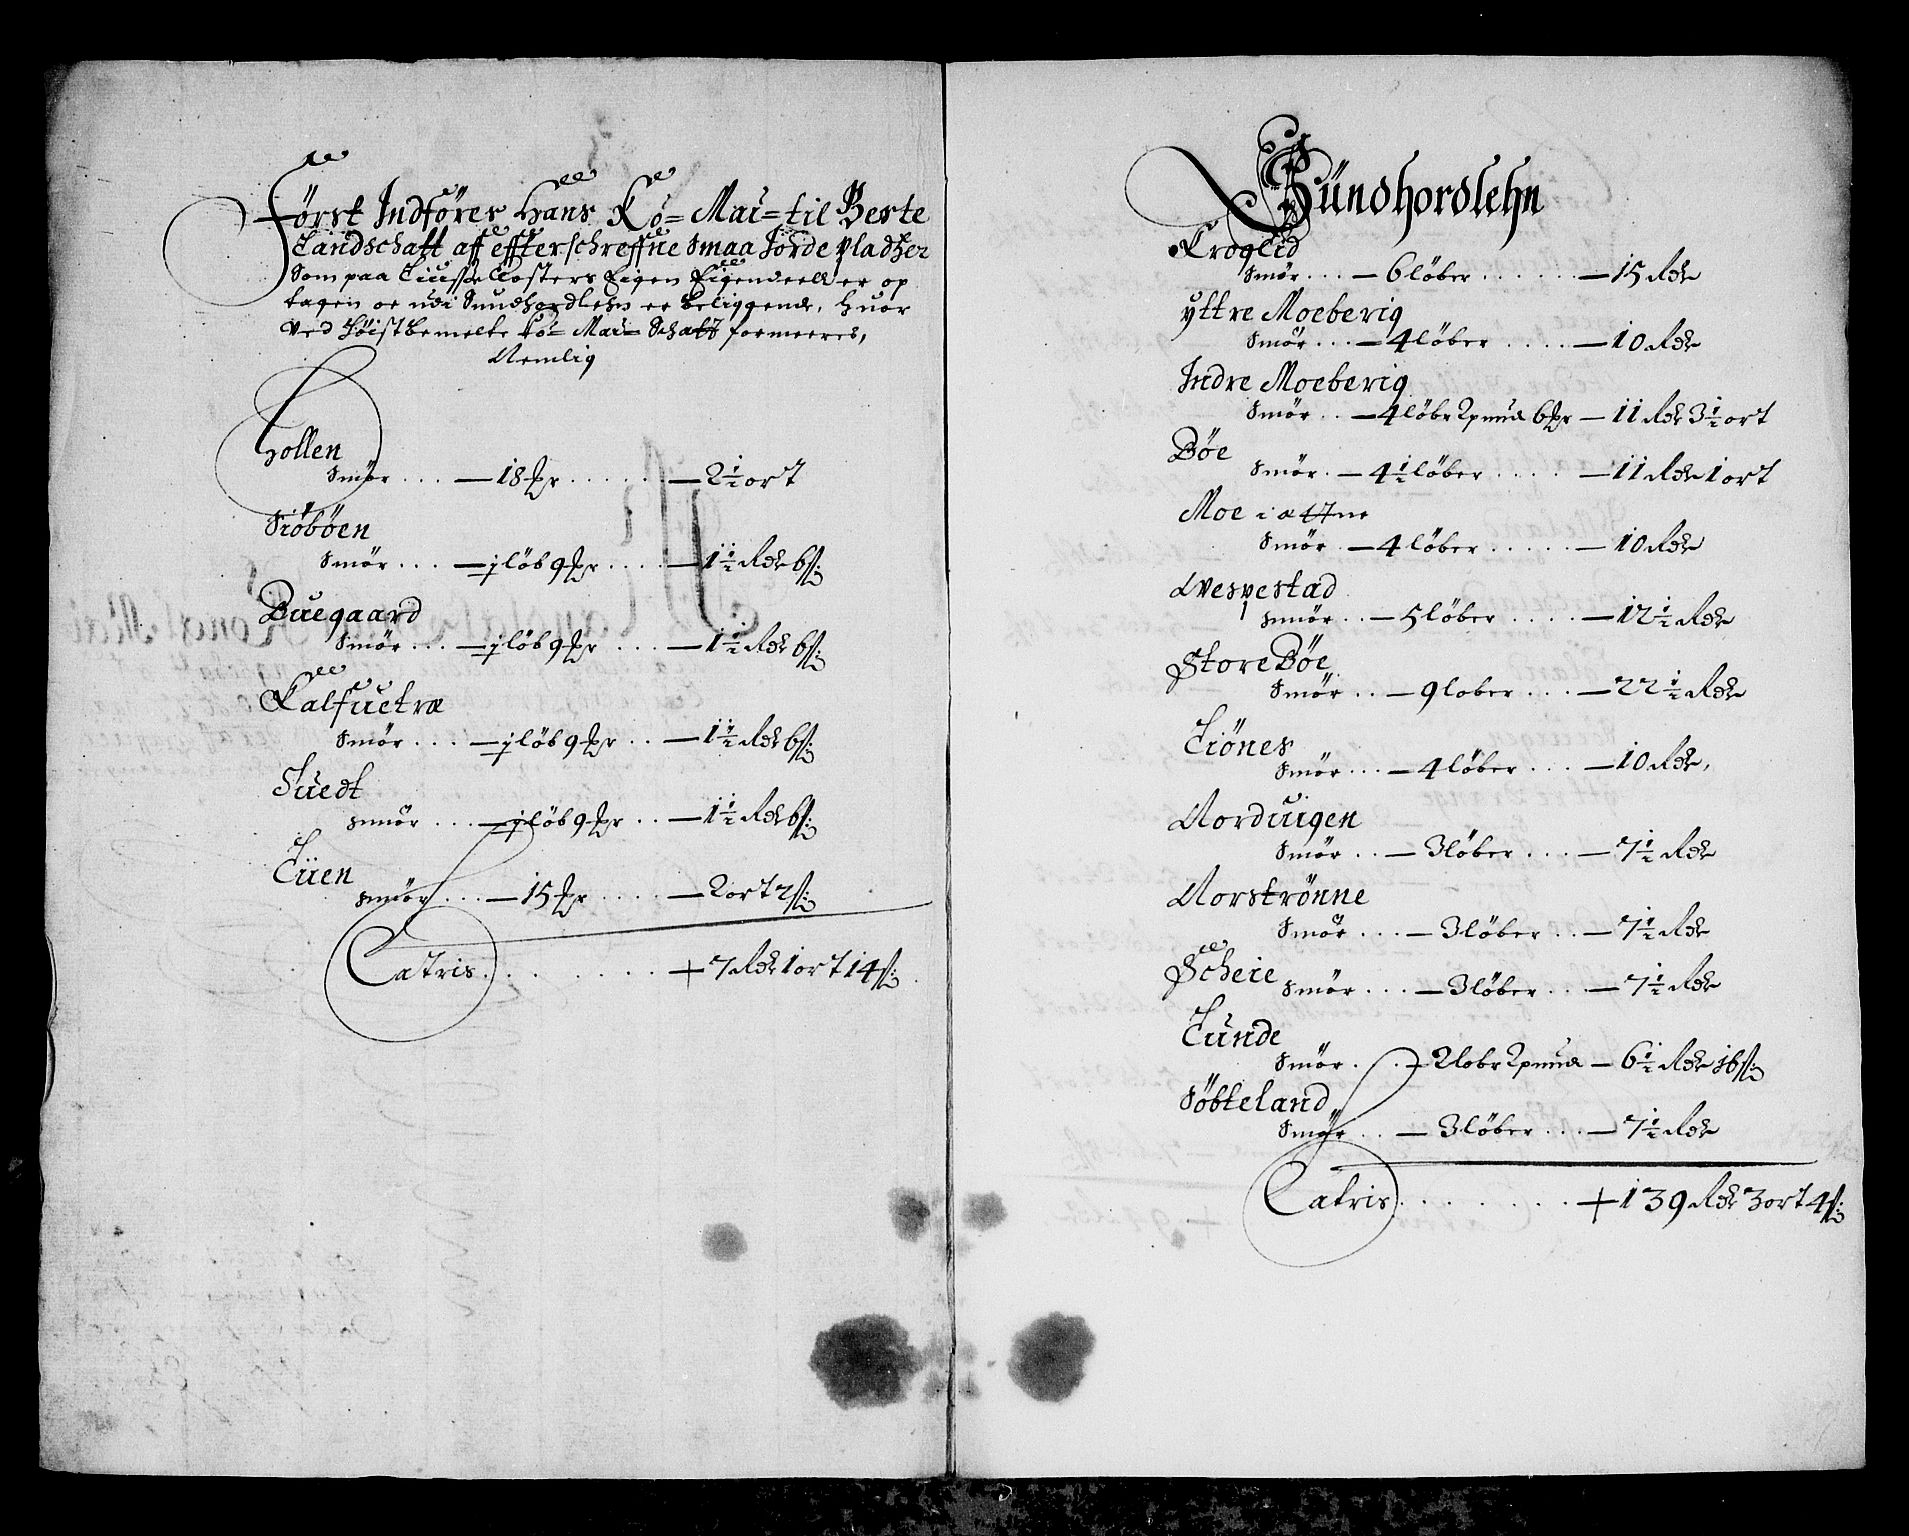 Först Indförer Hans Ko= Mai= til Beste
Landschatt aff effterschreffne smaa Jorde pladtzer
Som paa Liusse Closters Eigen Eigendeell er op
tagen oc udi Sundhordlehn er beliggende, huor
ved höistbemelte Ko= Mai= Schatt formeeres,
Nemlig
Hollen
Smör . . . — 18 ℔r . . . . . — 2½ ort
Siöböen
Smör . . . — j löb 9 ℔r . . . . — 1½ Rdr 6 ß:
Buegaard
Smör . . . — j löb 9 ℔r . . . — 1½ Rdr 6 ß:
Kalfuetræ
Smör . . . — j löb 9 ℔r . . — 1½ Rdr 6 ß:
Suedt
smör . . . — j löb 9 ℔r . . — 1½ Rdr 6 ß:
Lien
smör . . . — 15 ℔r . . . . — 2 ort 2 ß:
Latris . . . . . . . + 7 Rdr 1 ort 14 ß:
Sündhordlehn
Kroglid
Smör . . . — 6 löber . . . . . — 15 Rdr
yttre Moeberig
Smör . . . — 4 löber . . . . — 10 Rdr
Indre Moeberig
Smör . . — 4 löbr 2 pund 6 ℔r — 11 Rdr 3½ ort
Böe
Smör . — 4½ löber . . . . — 11 Rdr 1 ort
Moe i ætne
Smör . — 4 löber . . . . . — 10 Rdr
Wespestad
smör . . — 5 löber . . . . — 12½ Rdr
Store Böe
Smör . . — 9 lober . . . — 22½ Rdr
Liönes
Smör . . . — 4 löber . . . — 10 Rdr,
Norduigen
Smör . . — 3 löber . . . — 7½ Rdr
Norströnne
Smör . . . — 3 löber . . — 7½ Rdr
Scheie
Smör . . . — 3 löber . . . — 7½ Rdr
Lunde
Smör . . — 2 lobr 2 pund — 6½ Rdr 16 ß:
Söbteland
Smör . . — 3 löber . . . — 7½ Rdr
Latris . . . . . . . + 139 Rdr 3 ort 4 ß: